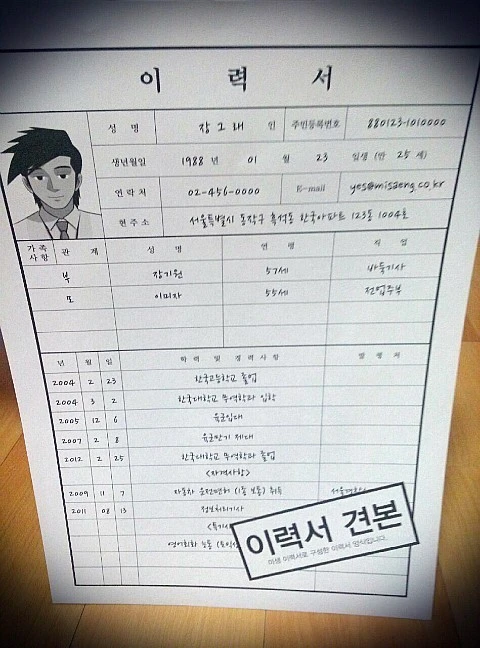 이 력 서
성 명 장그래 인 주민등록번호 880123-1010000
생년월일 1988 년 01 월 23 일생 (만 25 세)
연락처 02-456-0000 E-mail yes@misaeng.co.kr
현주소 서울특별시 동작구 흑석동 한국아파트 123동 1004호
가족사항 관 계 성 명 연 령 직 업
부 장기원 57세 바둑기사
모 이미자 55세 전업주부
년 월 일 학 력 및 경 력 사 항 발 령 처
2004 2 23 한국고등학교 졸업
2004 3 2 한국대학교 무역학과 입학
2005 12 6 육군입대
2007 2 8 육군만기 제대
2012 2 25 한국대학교 무역학과 졸업
<자격사항>
2009 11 7 자동차 운전면허 (1종 보통) 취득
2011 08 13 정보처리기사
영어회화 능통
이력서 견본
미생 이력서로 구성한 이력서 양식입니다.